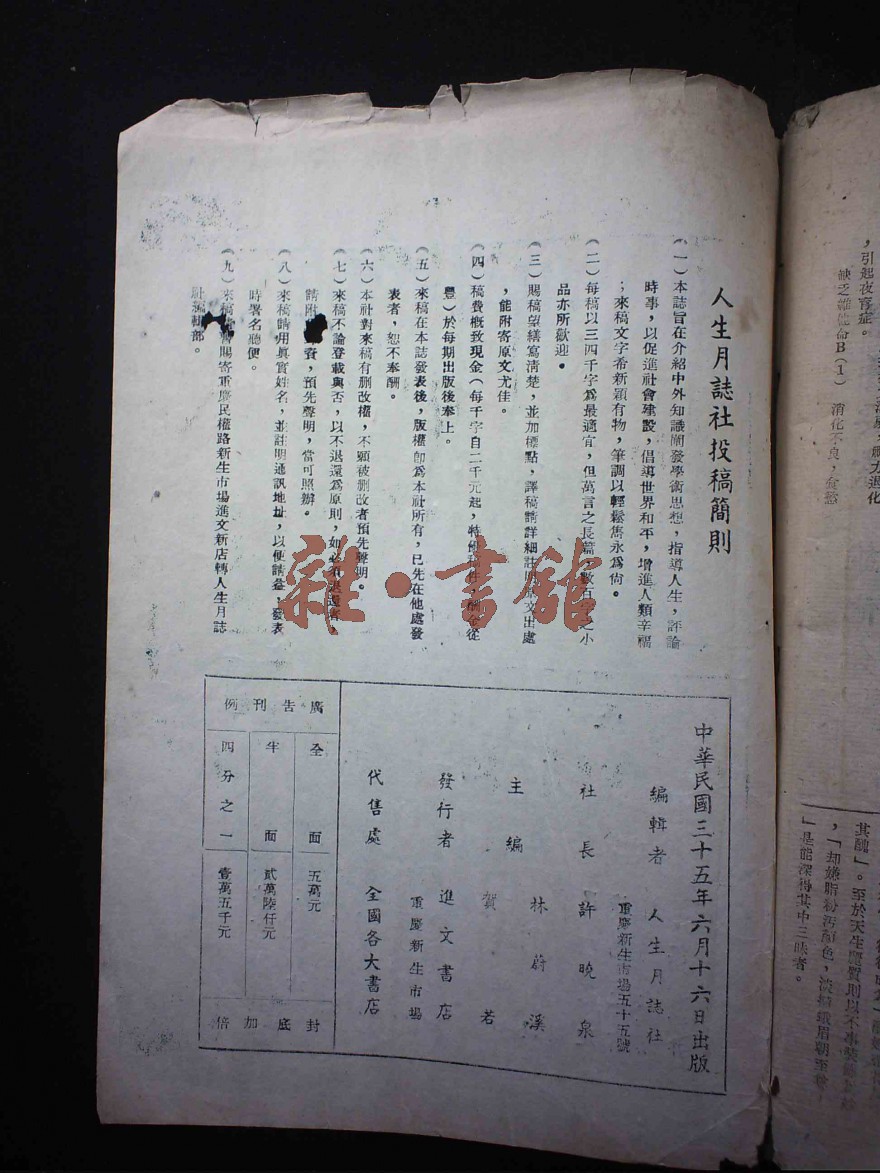 ，引起夜盲症。
缺乏維他命B（1）　消化不良，食慾
其醜」。至於天生麗質則以不事裝
，「却嫌脂粉污顏色，淡掃蛾眉朝至尊
」是能深得其中三昧者。
人生月誌社投稿簡則
（一）本誌旨在介紹中外知識闡發學術思想，指導人生，評論
時事，以促進社會建設，倡導世界和平，增進人類幸福
；來稿文字希新穎有物，筆調以輕鬆雋永爲尙。
（二）每稿以三四千字爲最適宜，但萬言之長篇數百之小
品亦所歡迎。
（三）賜稿望繕寫淸楚，並加標點，譯稿請詳細註明原文出處
，能附寄原文尤佳。
（四）稿費槪致現金（每千字自二千元起，特優稿件，酬金從
豐）於每期出版後奉上。
（五）來稿在本誌發表後，版權卽爲本社所有，已先在他處發
表者，恕不奉酬。
（六）本社對來稿有删改權，不願被删改者預先聲明。
（七）來稿不論登載與否，以不退還爲原則，如必須退還者，
請附費，預先聲明，當可照辦。
（八）來稿請用眞實姓名，並註明通訊地址，以便請益，發表
時署名聽便。
（九）來稿賜寄重慶民權路新生市場進文新店轉人生月誌
社編輯部。
中華民國三十五年六月十六日出版
編輯者　人生月誌社
重慶新生市場五十五號
社長　許曉泉
主編　林蔚溪
賀　若
發行者　進文書店
重慶新生市場
代售處　全國各大書店
廣告刊例
全面　五萬元
半面　貳萬陸仟元
四分之一　壹萬五千元
封底加倍
雜·書舘